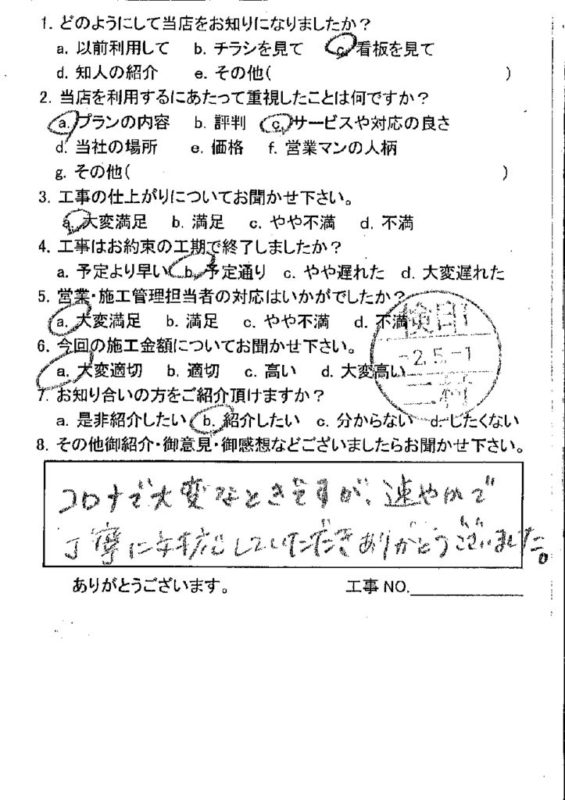 1. どのようにして当店をお知りになりましたか?
a. 以前利用して b. チラシを見て c. 看板を見て
d. 知人の紹介 e. その他( )
2. 当店を利用するにあたって重視したことは何ですか?
a. プランの内容 b. 評判 c. サービスや対応の良さ
d. 当社の場所 e. 価格 f. 営業マンの人柄
g. その他( )
3. 工事の仕上がりについてお聞かせ下さい。
a. 大変満足 b. 満足 c. やや不満 d. 不満
4. 工事はお約束の工期で終了しましたか?
a. 予定より早い b. 予定通り c. やや遅れた d. 大変遅れた
5. 営業・施工管理担当者の対応はいかがでしたか?
a. 大変満足 b. 満足 c. やや不満 d. 不満
検印
2.5.-1
6. 今回の施工金額についてお聞かせ下さい。
a. 大変適切 b. 適切 c. 高い d. 大変高い
7. お知り合いの方をご紹介頂けますか?
a. 是非紹介したい b. 紹介したい c. 分からない d. したくない
8. その他御紹介・御意見・御感想などございましたらお聞かせ下さい。
コロナで大変なときですが、速やかで
丁寧に対応していただきありがとうございました。
ありがとうございます。 工事 NO.